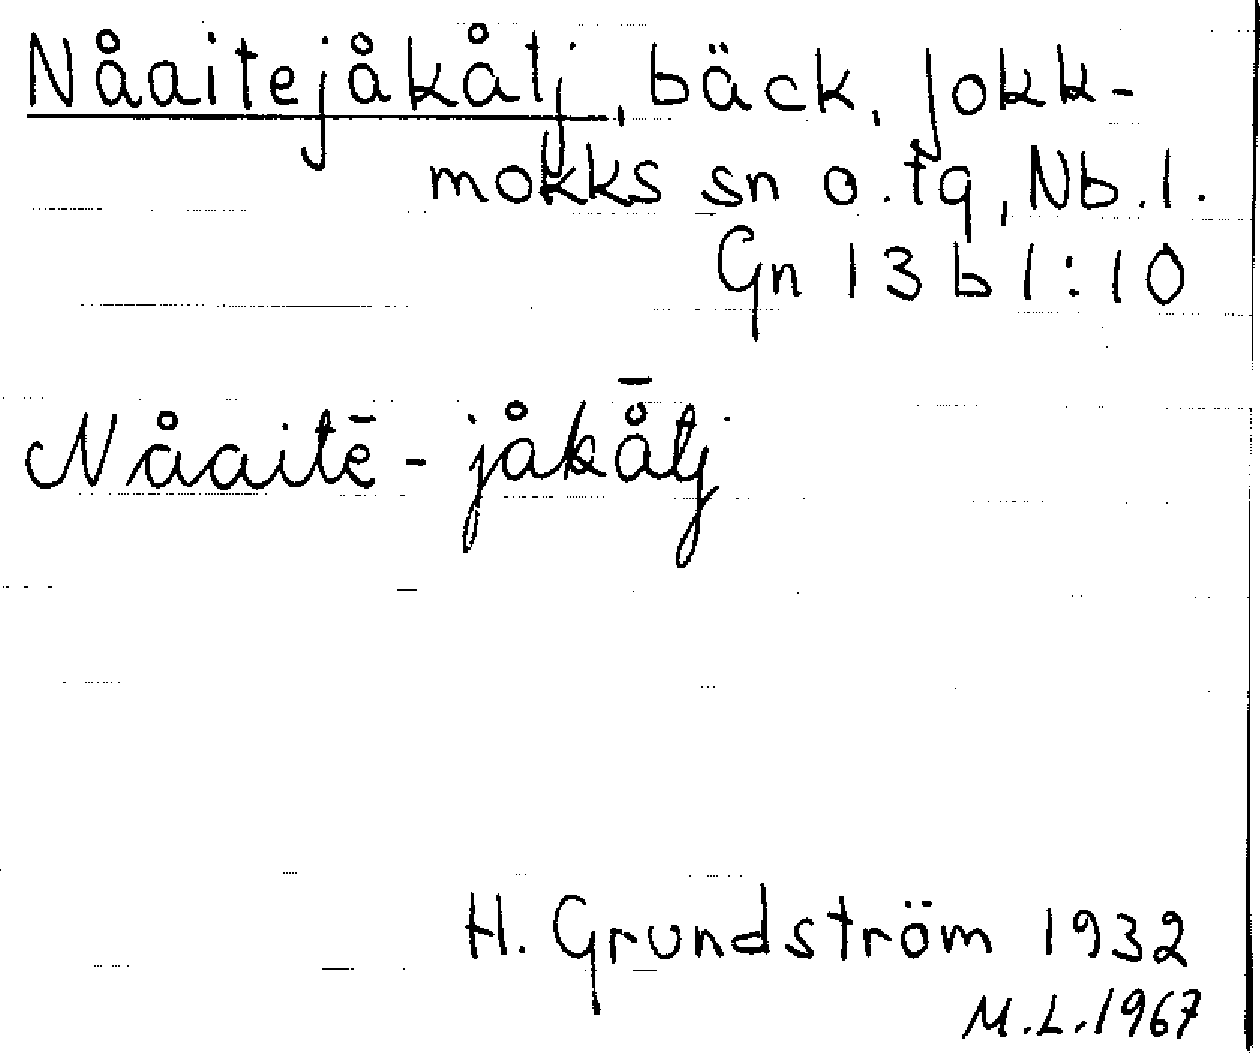 Nåaitejåkåtj, bäck, Jokk-
mokks sn o. tg, Nb. l.
Gn 13 b 1:10
Nåaitē-jåkå̄tj
H. Grundström 1932
M.L. 1967